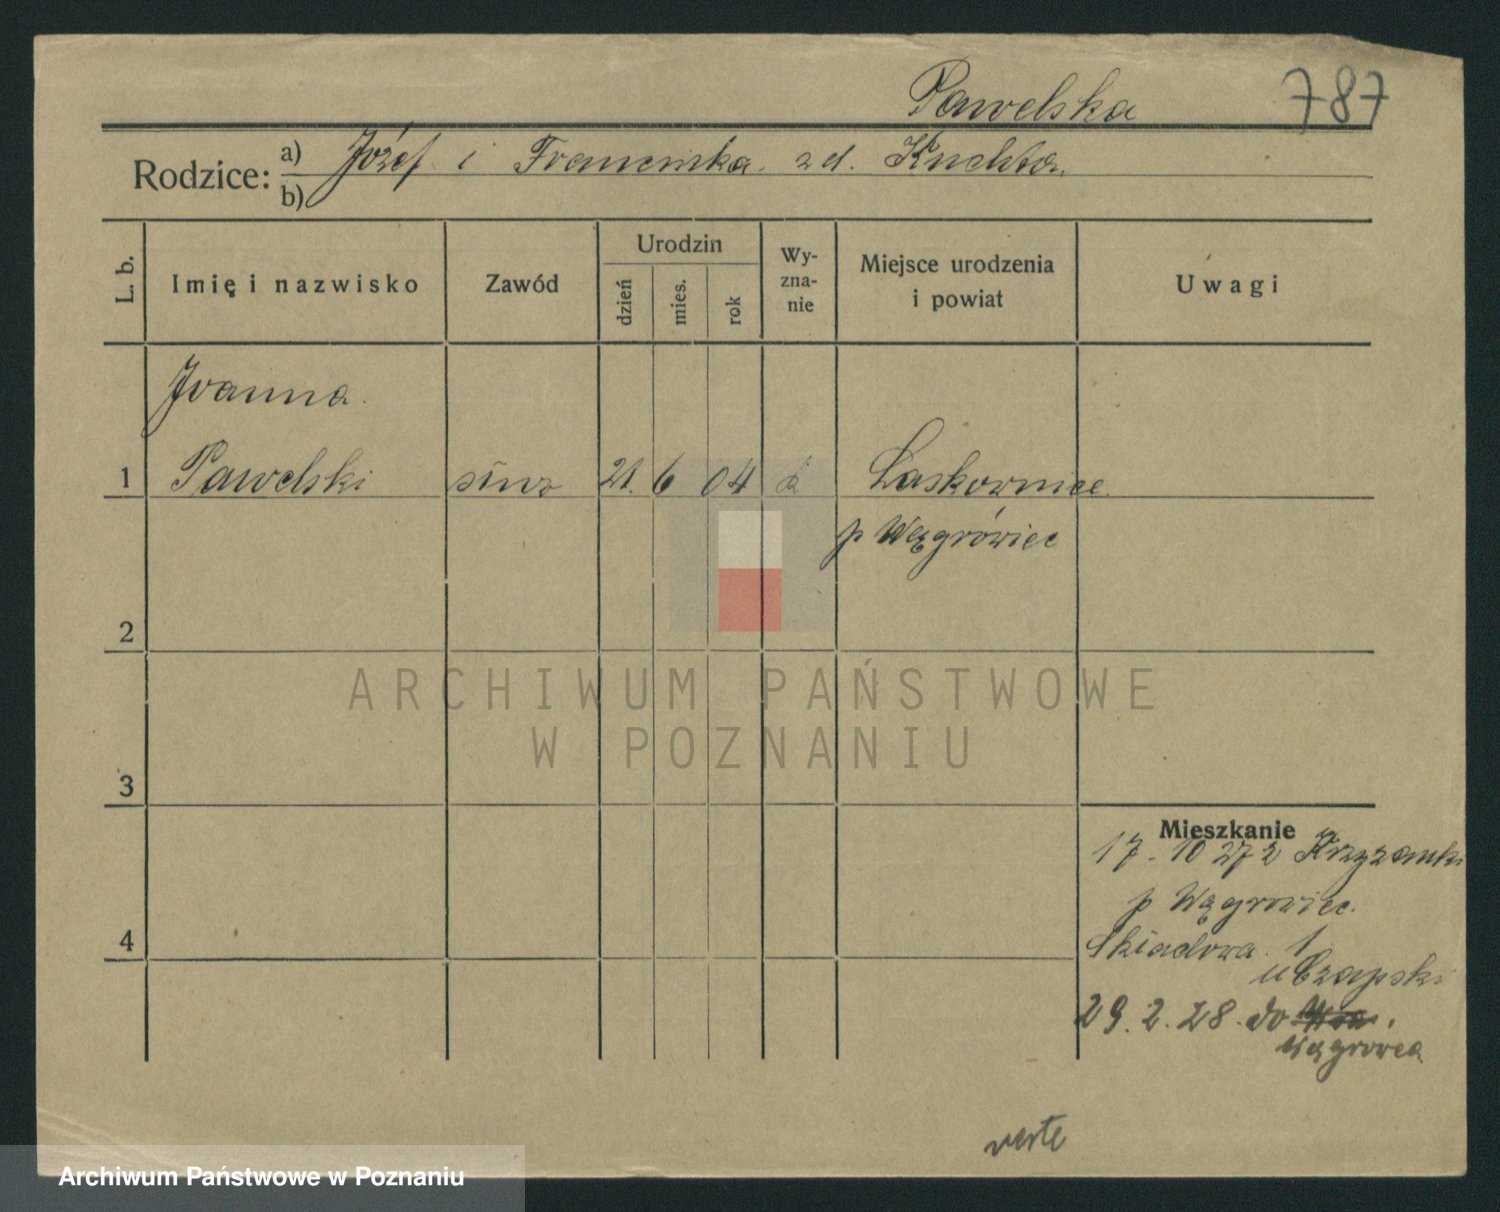 Pawelska 787
Rodzice: a) Józef i Franciszka zd. Kuchta
b)
L. b. Imię i nazwisko Zawód Urodzin dzień mies. rok Wy-zna-nie Miejsce urodzenia i powiat Uwagi
Joanna
1 Pawelski służ 21. 6 04 k Laskownice
p Wągrówiec
2
ARCHIWUM PAŃSTWOWE
W POZNANIU
3
Mieszkanie
17-10 27 z Krzyżanki
p Wągrowiec.
4 Składowa 1
u Czapski
29.2.28. do
Wągrowca
verte
Archiwum Państwowe w Poznaniu